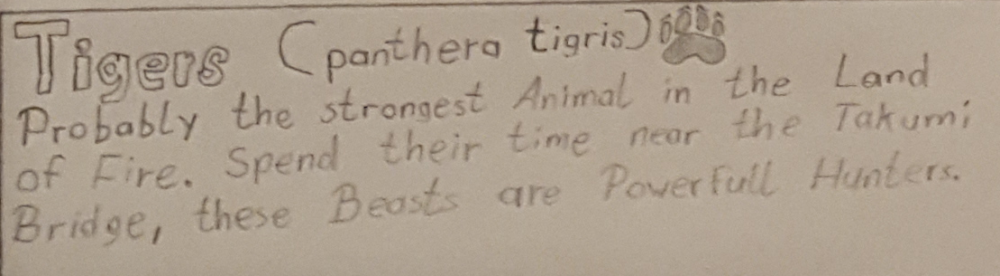 Tigers (panthera tigris)
Probably the strongest Animal in the Land
of Fire. Spend their time near the Takumi
Bridge, these Beasts are Powerfull Hunters.